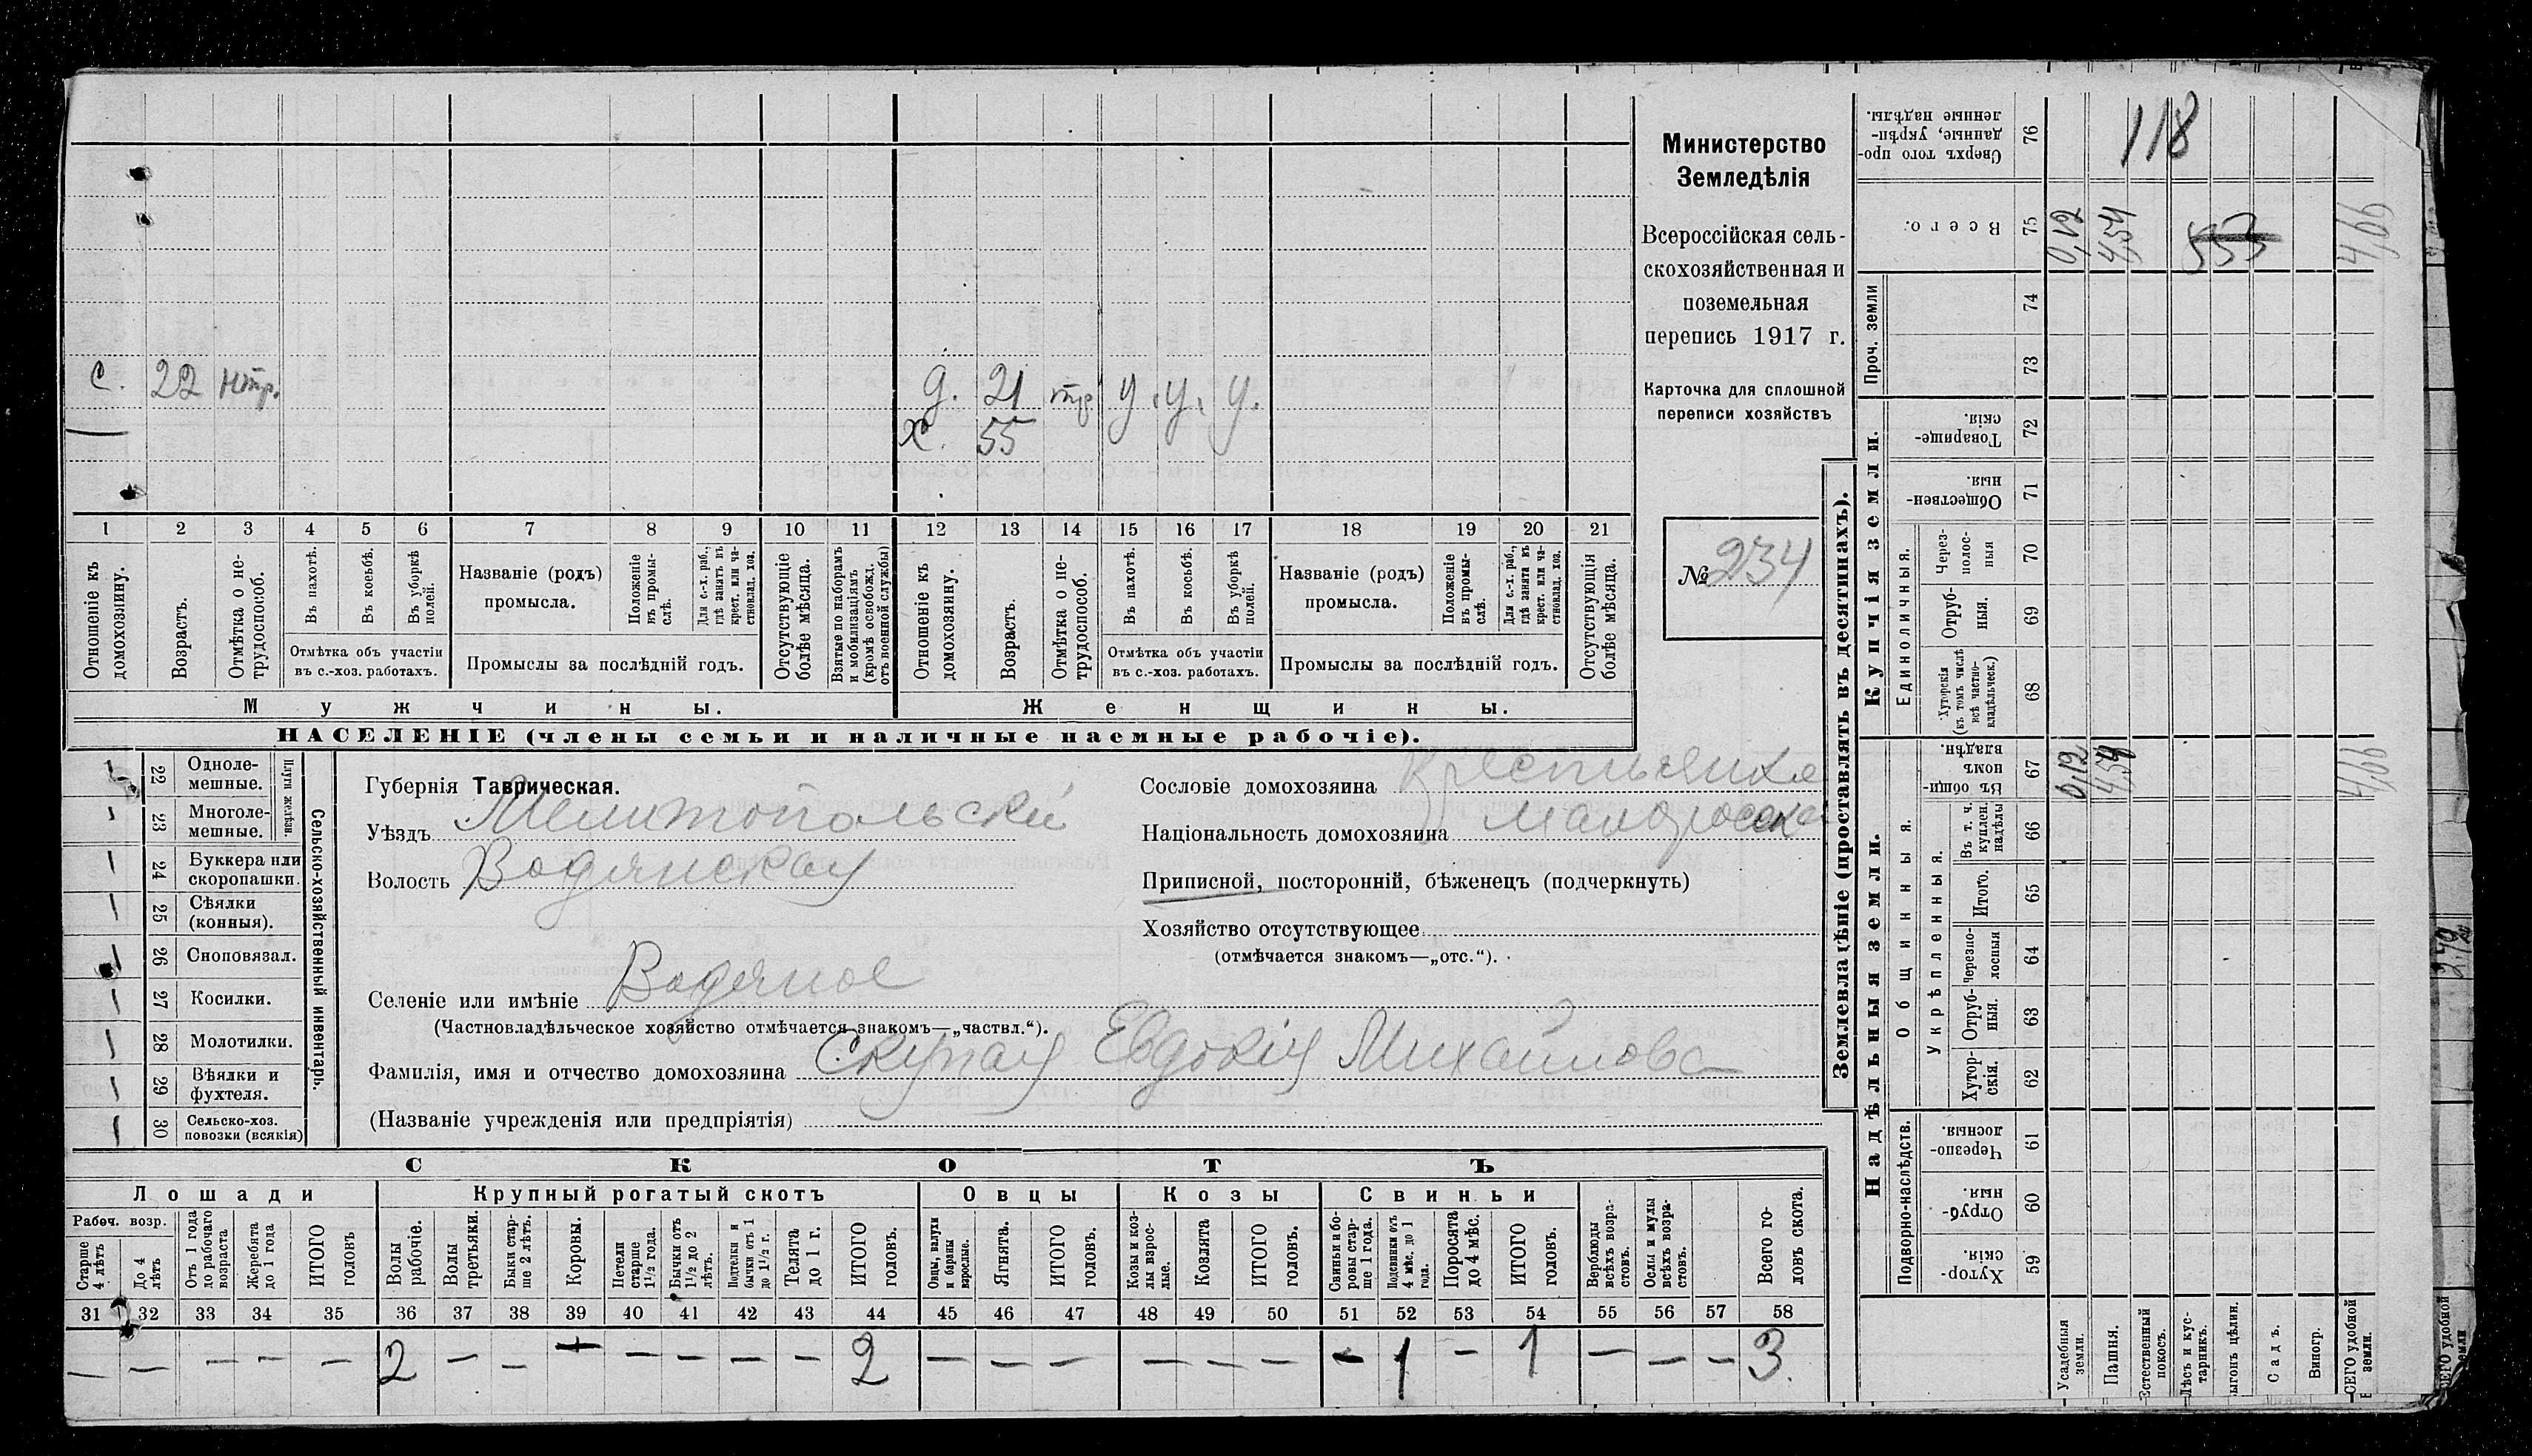 Министерство
Земледѣлія
Всероссійская сель-
скохозяйственная и
поземельная
перепись 1917 г.
Карточка для сплошной
переписи хозяйствъ
№ 234
с. 22 нтр.
д. 21 тр у. у. у.
х. 55
1 2 3 4 5 6 7 8 9 10 11 12 13 14 15 16 17 18 19 20 21
Отношеніе къ домохозяину.
Возрастъ.
Отмѣтка о не-трудоспособ.
Въ пахотѣ.
Въ косьбѣ.
Въ уборкѣ полей.
Отмѣтка объ участіи
въ с.-хоз. работахъ.
Названіе (родъ)
промысла.
Положеніе въ промы-слѣ.
Для с.-х. раб., гдѣ занятъ въ крест. или ча-стновлад. хоз.
Промыслы за послѣдній годъ.
Отсутствующіе болѣе мѣсяца.
Взятые по наборамъ и мобилизаціямъ (кромѣ освобожд. отъ военной службы)
Отношеніе къ домохозяину.
Возрастъ.
Отмѣтка о не-трудоспособ.
Въ пахотѣ.
Въ косьбѣ.
Въ уборкѣ полей.
Отмѣтка объ участіи
въ с.-хоз. работахъ.
Названіе (родъ)
промысла.
Положеніе въ промы-слѣ.
Для с.-х. раб., гдѣ занята въ крест. или ча-стновлад. хоз.
Промыслы за послѣдній годъ.
Отсутствующія болѣе мѣсяца.
Мужчины. Женщины.
НАСЕЛЕНІЕ (члены семьи и наличные наемные рабочіе).
Сельско-хозяйственный инвентарь.
Плуги желѣзн.
22 Одноле-мешные.
23 Многоле-мешные.
24 Буккера или скоропашки.
25 Сѣялки (конныя).
26 Сноповязал.
27 Косилки.
28 Молотилки.
29 Вѣялки и фухтеля.
30 Сельско-хоз. повозки (всякія)
Губернія Таврическая.
Уѣздъ Мелитопольскій
Волость Водянская
Селеніе или имѣніе Водяное
(Частновладѣльческое хозяйство отмѣчается знакомъ—„частвл.“).
Фамилія, имя и отчество домохозяина Скупая Евдокія Михайлова
(Названіе учрежденія или предпріятія)
Сословіе домохозяина Крестьянка
Національность домохозяина малоросска
Приписной, посторонній, бѣженецъ (подчеркнуть)
Хозяйство отсутствующее
(отмѣчается знакомъ—„отс.“).
СКОТЪ
Лошади Крупный рогатый скотъ Овцы Козы Свиньи
Рабоч. возр.
Старше 4 лѣтъ
До 4 лѣтъ
Отъ 1 года до рабочаго возраста
Жеребята до 1 года
ИТОГО головъ
Волы рабочіе.
Волы третьяки.
Быки стар-ше 2 лѣтъ.
Коровы.
Нетели старше 1½ года.
Бычки отъ 1½ до 2 лѣтъ.
Подтелки и бычки отъ 1 до 1½ г.
Телята до 1 г.
ИТОГО головъ.
Овцы, валухи и бараны взрослые.
Ягнята.
ИТОГО головъ.
Козы и коз-лы взрос-лые.
Козлята
ИТОГО головъ.
Свиньи и бо-ровы стар-ше 1 года.
Подсвинки отъ 4 мѣс. до 1 года.
Поросята до 4 мѣс.
ИТОГО головъ.
Верблюды всѣхъ возра-стовъ.
Ослы и мулы всѣхъ возра-стовъ.
Всего го-ловъ скота.
31 32 33 34 35 36 37 38 39 40 41 42 43 44 45 46 47 48 49 50 51 52 53 54 55 56 57 58
— — — — — 2 — — — — — — — 2 — — — — — — — 1 — 1 — — — 3
Землевладѣніе (проставлять въ десятинахъ).
Сверхъ того про-данные, укрѣп-ленные надѣлы. 76 118
Всего. 75 0,12 4,54 553 4,66
Проч. земли 74 73
Купчія земли.
Товарище-скія. 72
Обществен-ныя. 71
Единоличныя.
Через-полос-ныя 70
Отруб-ныя. 69
Хуторскія (въ томъ числѣ всѣ частно-владѣльческ.) 68
Надѣльныя земли.
Общинныя.
Въ общи-номъ владѣн. 67 0,12 4,54 4,66
Укрѣпленныя.
Въ т. ч. куплен. надѣлы 66
Итого. 65
Черезпо-лосныя 64
Отруб-ныя. 63
Хутор-скія. 62
Подворно-наслѣдств.
Черезпо-лосныя. 61
Отруб-ныя. 60
Хутор-скія. 59
Усадебныя земли.
Пашня.
Естественный покосъ.
Лѣсъ и кус-тарникъ.
ыгонъ цѣлин.
Садъ.
Виногр.
СЕГО удобной земли.